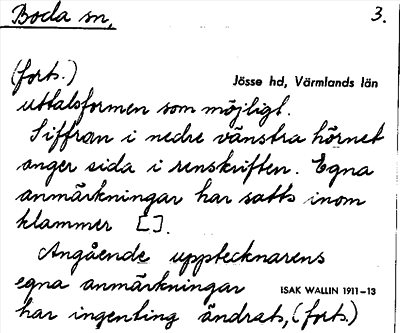 Boda sn,
3.
(forts.)
Jösse hd, Värmlands län
uttalsformen som möjligt.
Siffran i nedre vänstra hörnet
anger sida i renskriften. Egna
anmärkningar har satts inom
klammer [ ].
Angående upptecknarens
egna anmärkningar
ISAK WALLIN 1911-13
har ingenting ändrats, (forts.)